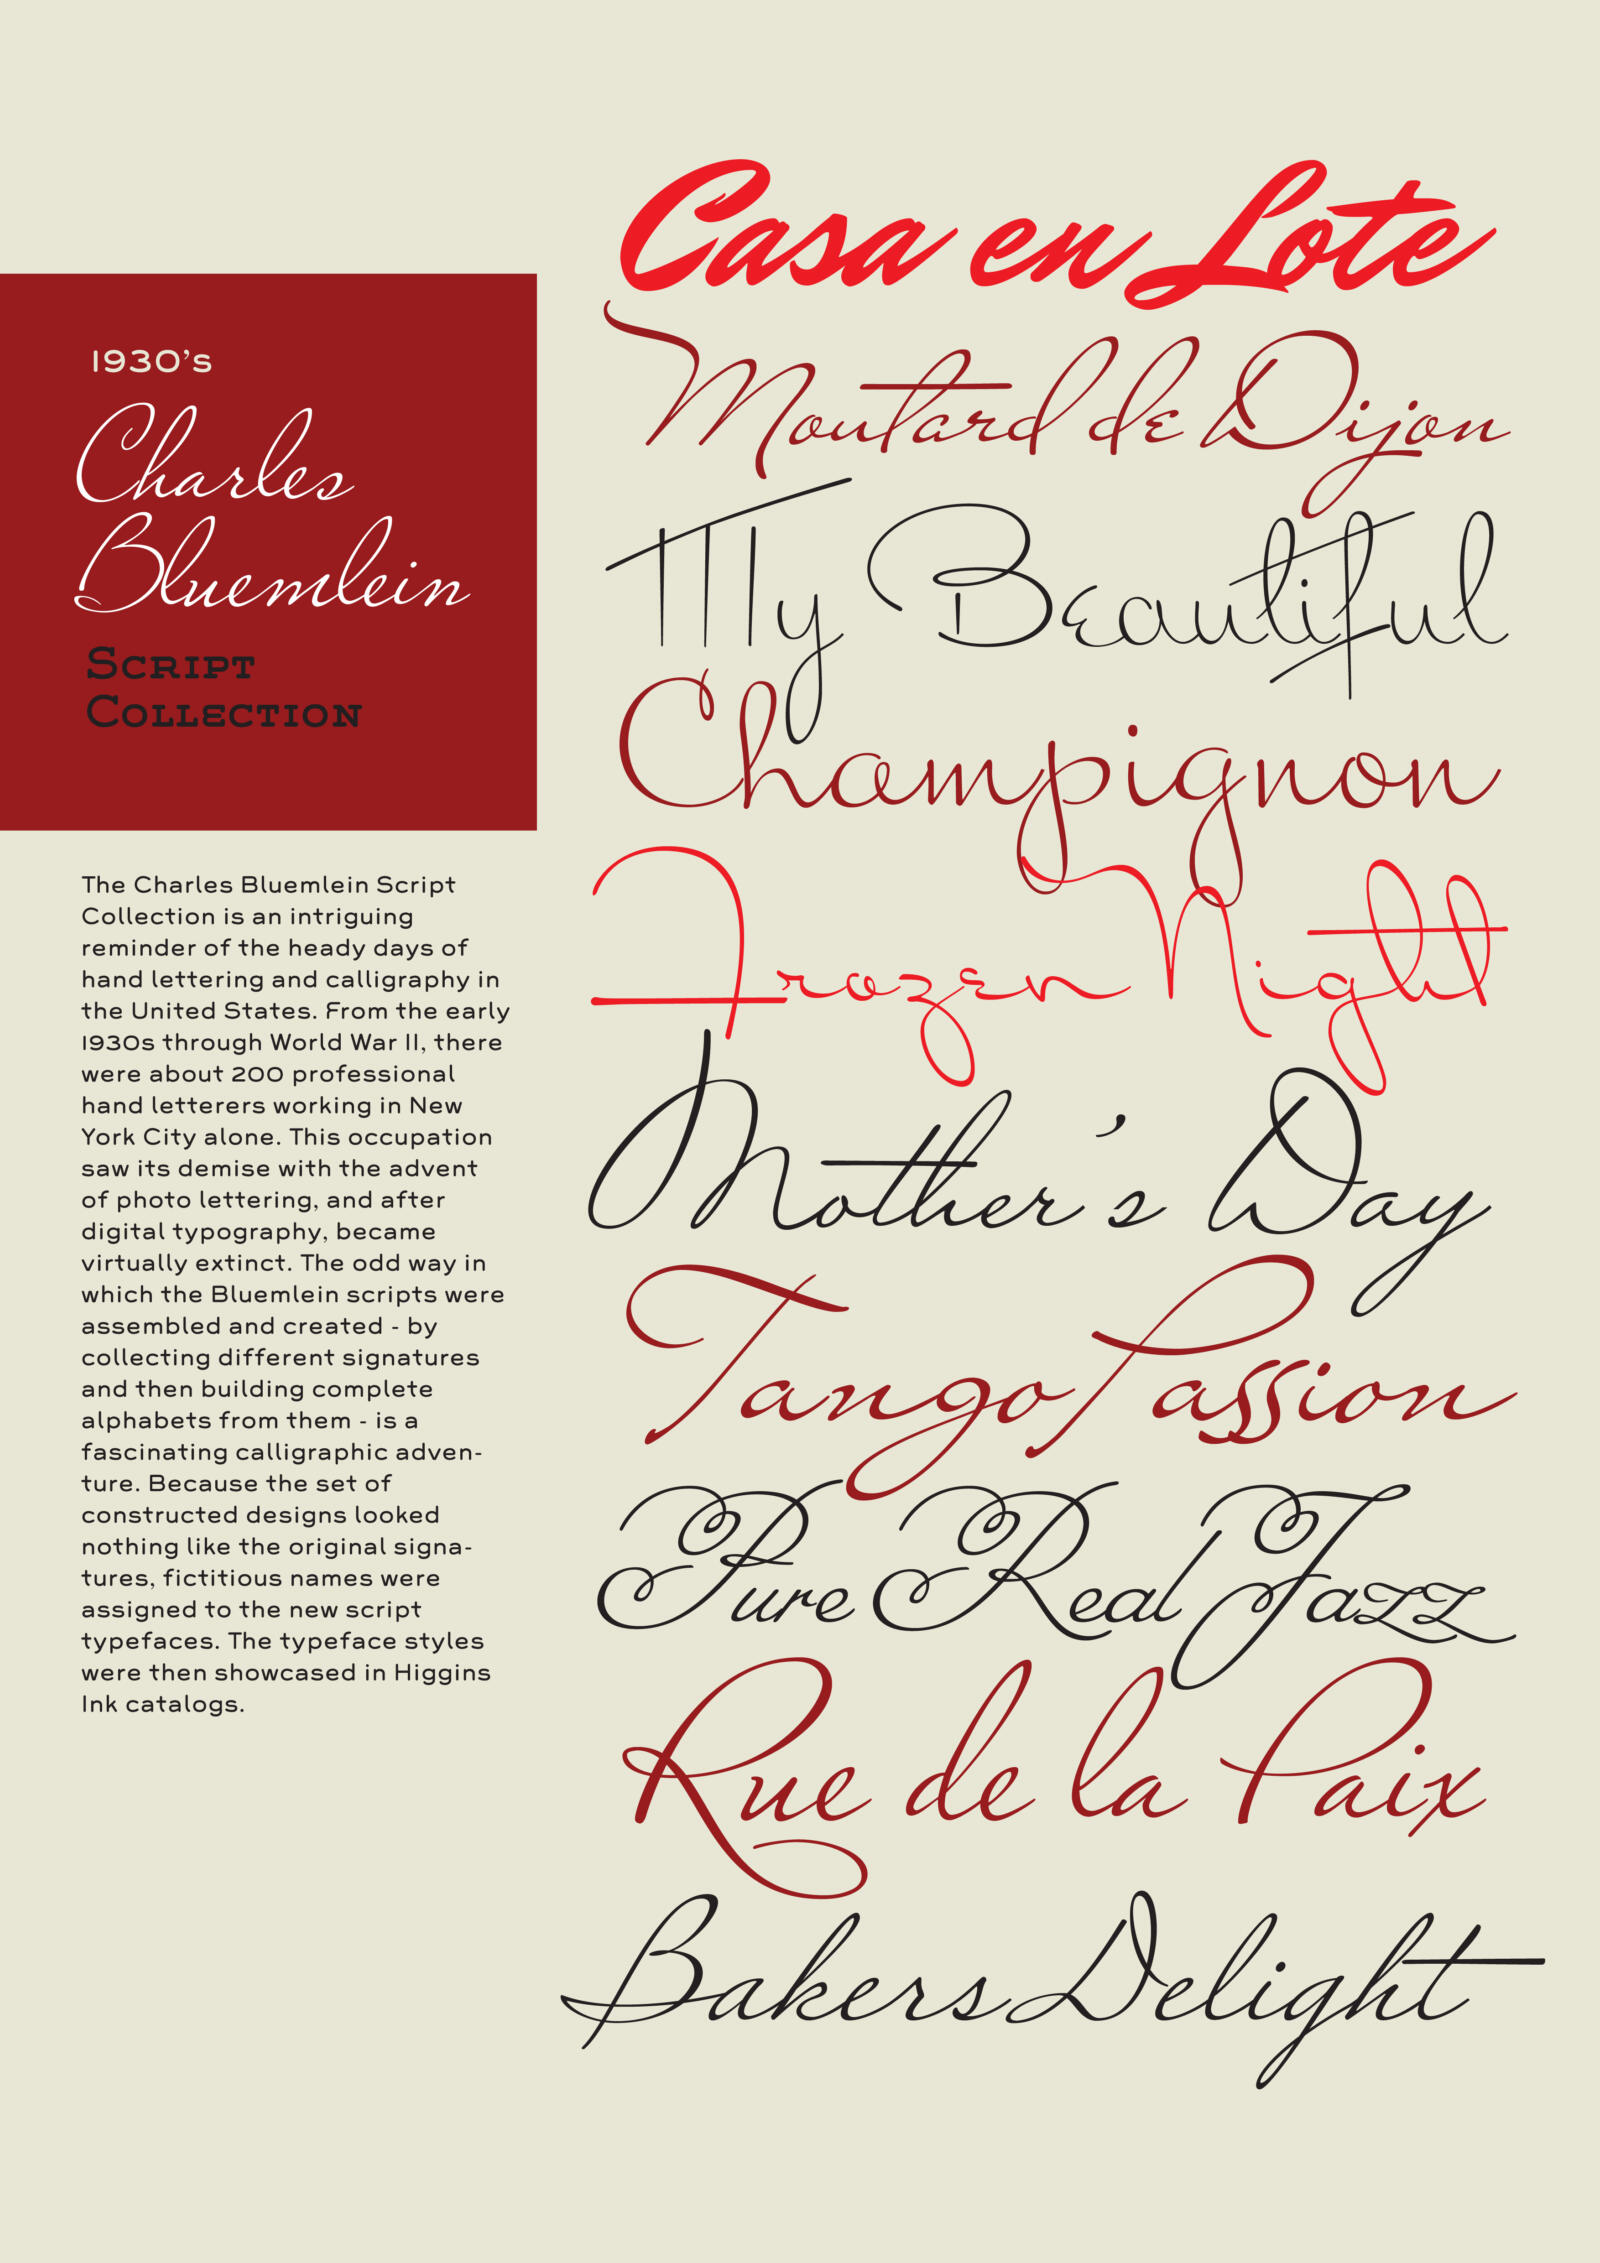 1930's
Charles
Bluemlein
Script
Collection
The Charles Bluemlein Script
Collection is an intriguing
reminder of the heady days of
hand lettering and calligraphy in
the United States. From the early
1930s through World War II, there
were about 200 professional
hand letterers working in New
York City alone. This occupation
saw its demise with the advent
of photo lettering, and after
digital typography, became
virtually extinct. The odd way in
which the Bluemlein scripts were
assembled and created - by
collecting different signatures
and then building complete
alphabets from them - is a
fascinating calligraphic adven-
ture. Because the set of
constructed designs looked
nothing like the original signa-
tures, fictitious names were
assigned to the new script
typefaces. The typeface styles
were then showcased in Higgins
Ink catalogs.
Casa en Lote
Moutard de Dijon
My Beautiful
Champignon
Frozen Night
Mother's Day
Tango Passion
Pure Real Jazz
Rue de la Paix
Bakers Delight